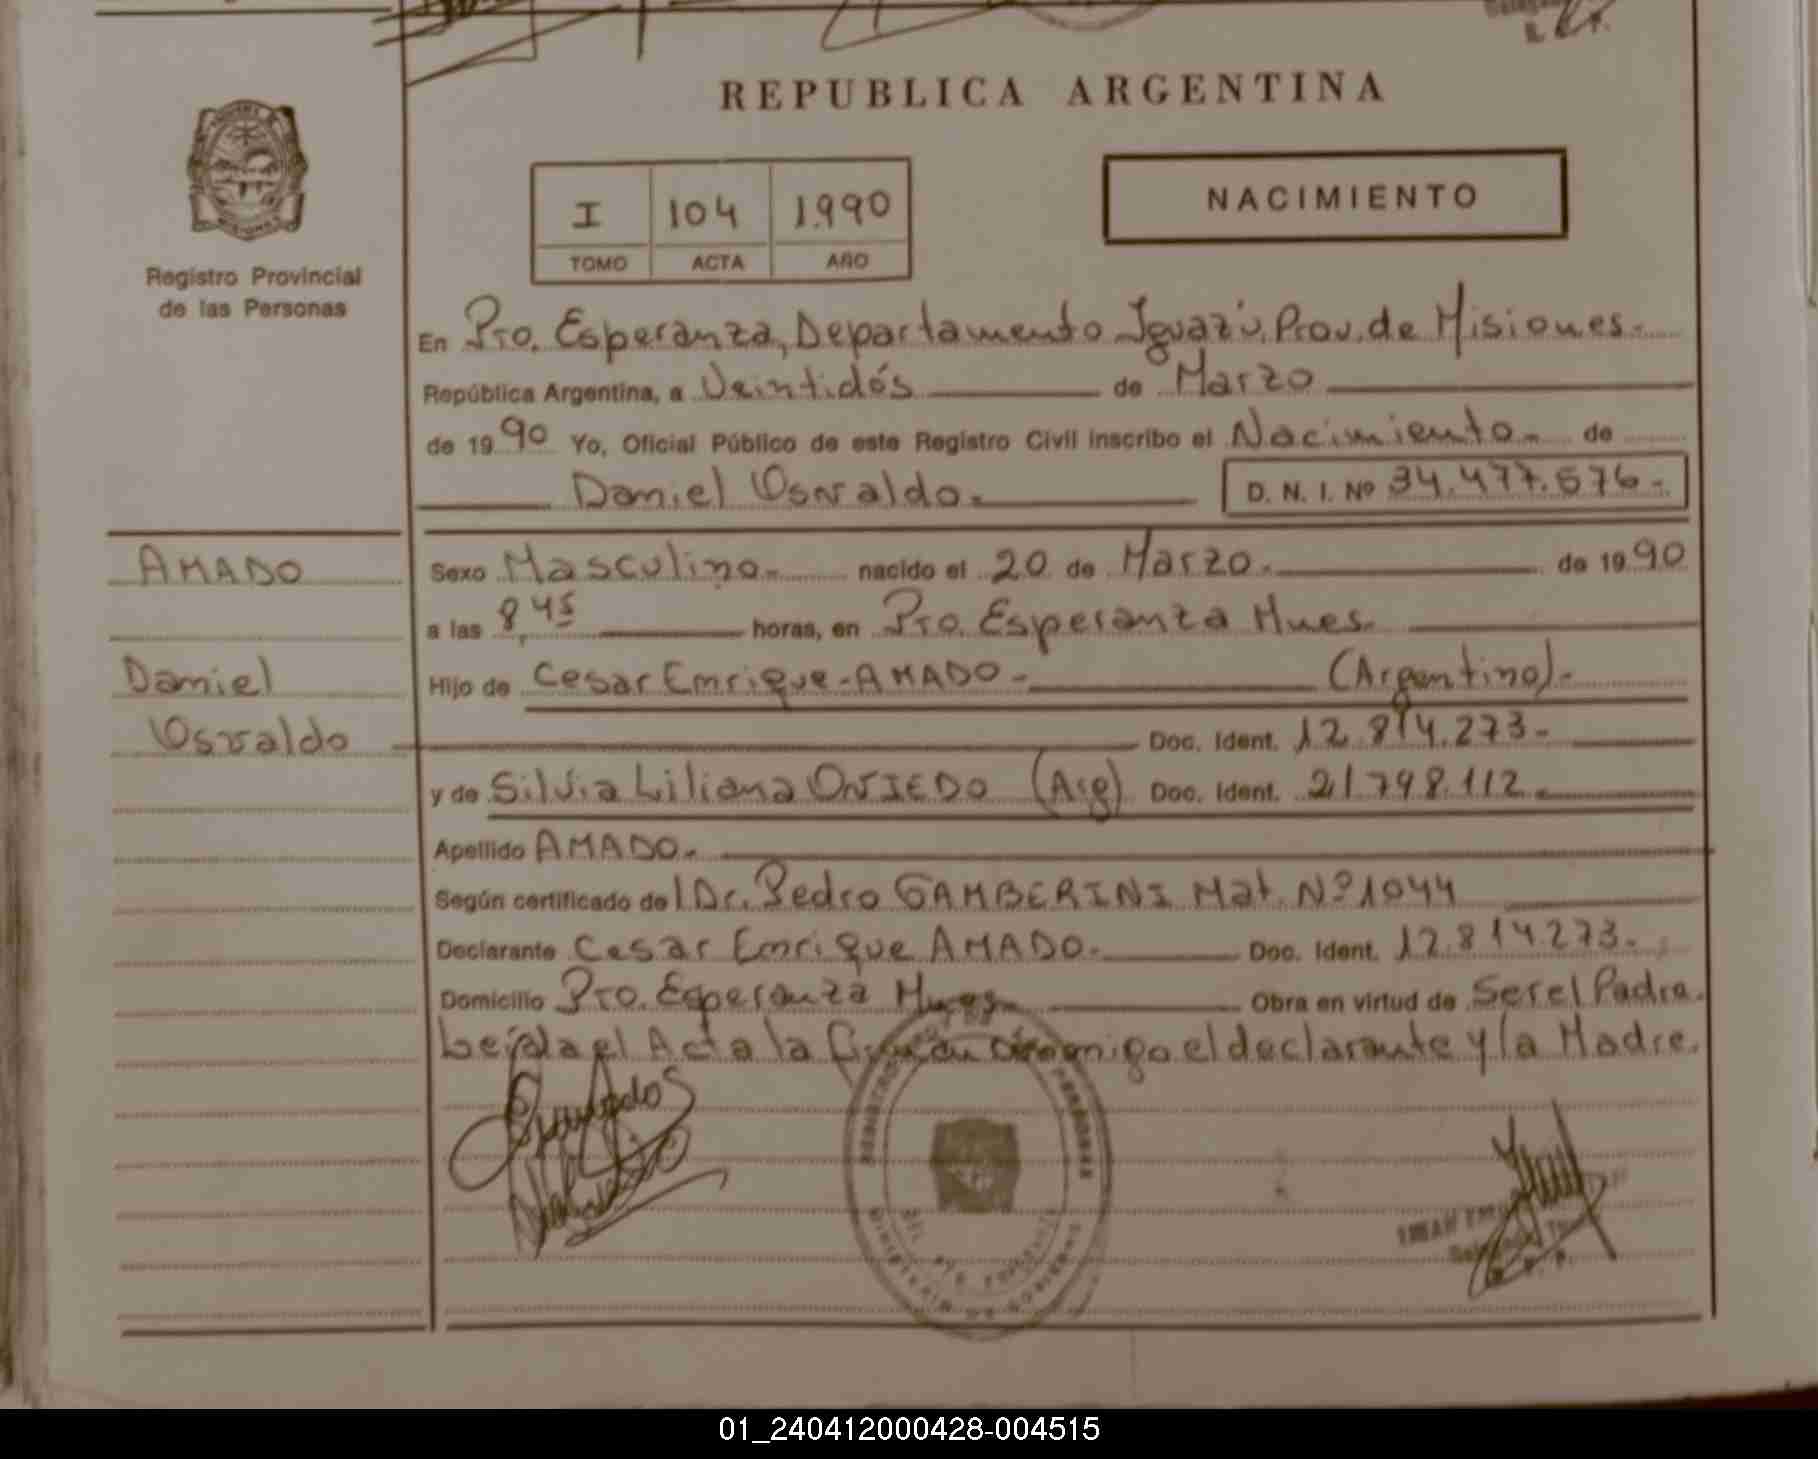 REPUBLICA ARGENTINA
I 104 1.990
TOMO ACTA AÑO
NACIMIENTO
Registro Provincial
de las Personas
En Pto. Esperanza, Departamento Iguazú, Prov. de Misiones.
República Argentina, a Veintidós de Marzo
de 1990 Yo, Oficial Público de este Registro Civil inscribo el Nacimiento. de
Daniel Osvaldo. D. N. I. Nº 34.477.576.-
AMADO
Daniel
Osvaldo
Sexo Masculino. nacido el 20 de Marzo. de 1990
a las 8,45 horas, en Pto. Esperanza Mnes.
Hijo de Cesar Enrique AMADO (Argentino).-
Doc. Ident. 12.814.273.-
y de Silvia Liliana OVIEDO (Arg) Doc. Ident. 21.798.112.
Apellido AMADO.
Según certificado del Dr. Pedro GAMBERINI Mat. Nº1044
Declarante Cesar Enrique AMADO. Doc. Ident. 12.814.273.
Domicilio Pto. Esperanza Mnes. Obra en virtud de Ser el Padre.
Leída el Acta la firman conmigo el declarante y la Madre.
01_240412000428-004515